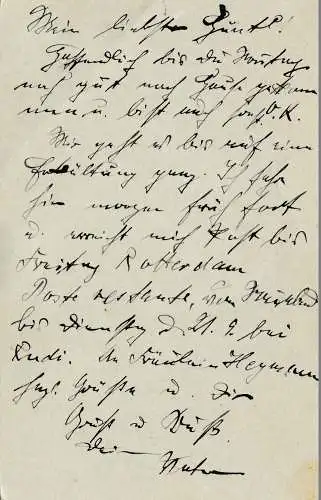 Mein liebster Günt!
Hoffentlich bis du Montag
noch gut nach Hause gekom
men u. bist auch sonst O.K.
Mir geht es bis auf eine
Erkältung ganz. Ich fahre
hier morgen früh fort
u. erreicht mich Post bis
Freitag Rotterdam
Poste restante, von
bis Dienstag d. 21. 9. bei
Rudi. An Fräulein Heymann
herzl. Grüße u. Dir
Gruß u Kuß.
Dein